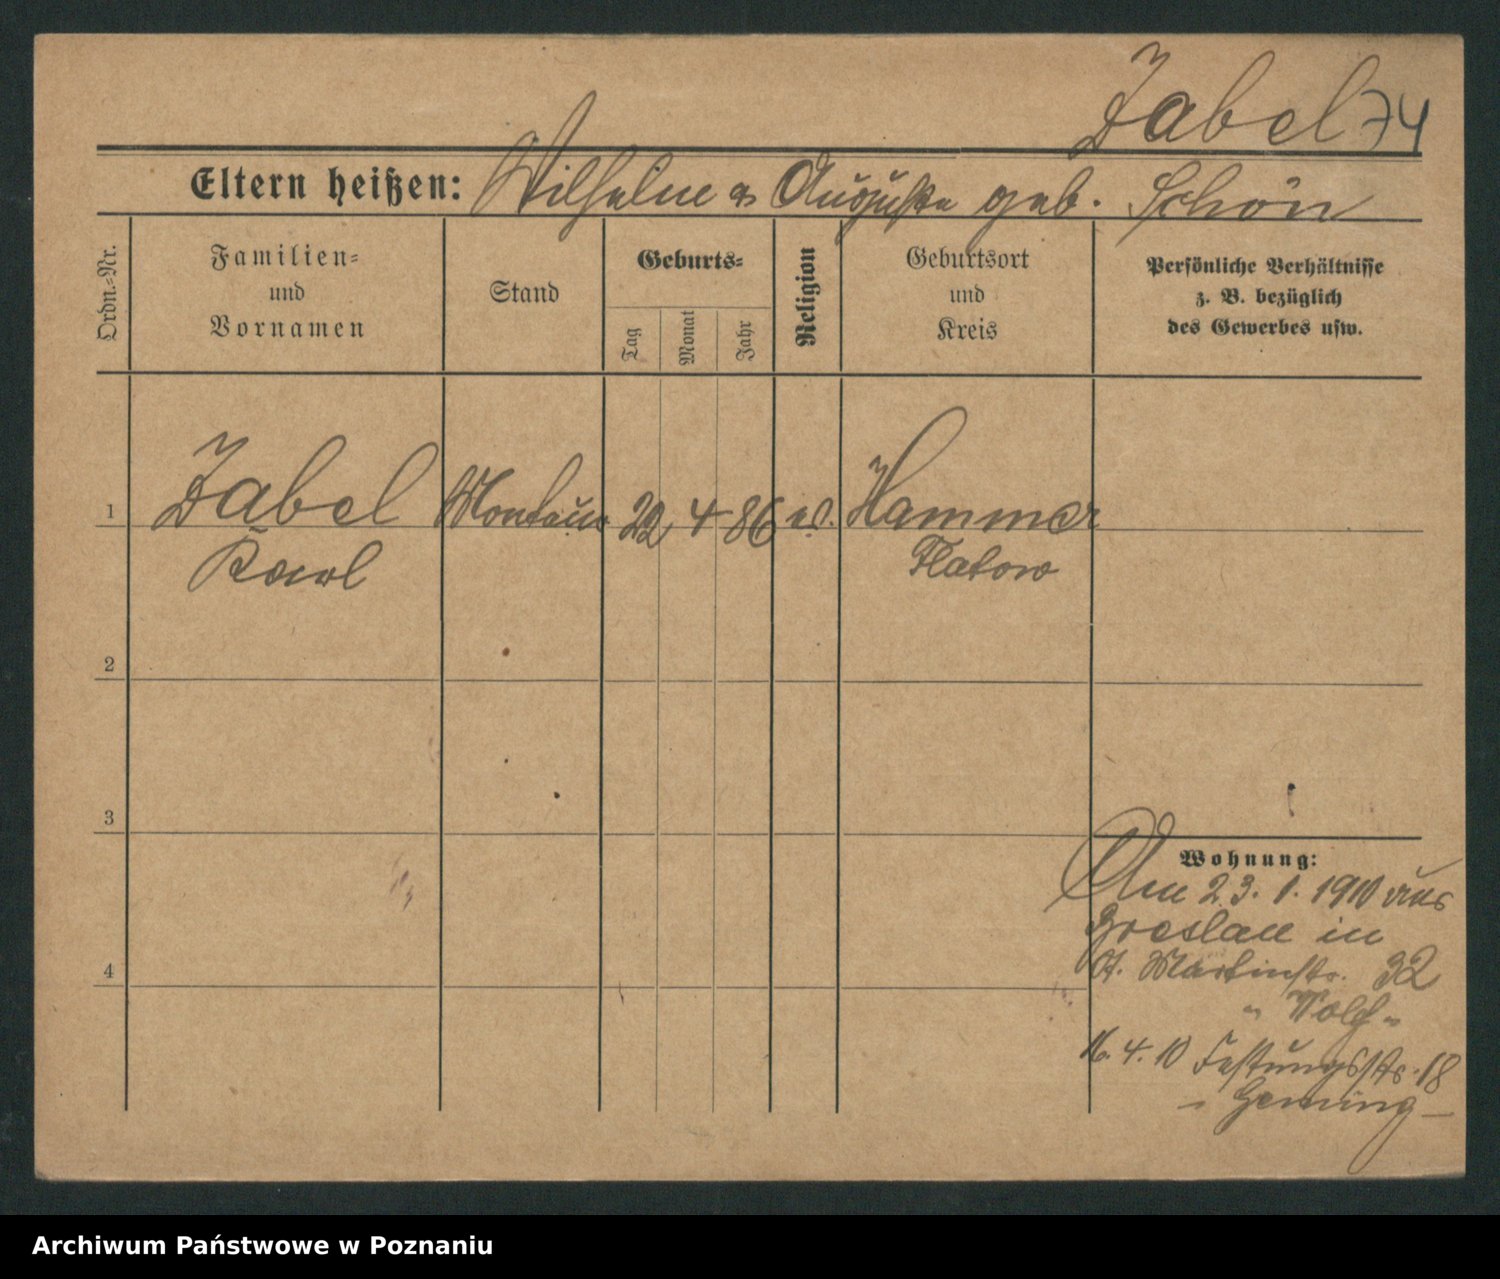 Zabel 74
Eltern heißen: Wilhelm u Auguste geb. Schön
Ordn.-Nr.
Familien-
und
Vornamen
Stand
Geburts-
Tag
Monat
Jahr
Religion
Geburtsort
und
Kreis
Persönliche Verhältnisse
z. B. bezüglich
des Gewerbes usw.
1 Zabel Monteur 22 4 86 ev. Hammer
Karl Flatow
2
3
Wohnung:
Am 23. 1. 1910 aus
Breslau in
4
St. Martinstr. 32
16. 4. 10 Festungsstr. 18
Archiwum Państwowe w Poznaniu